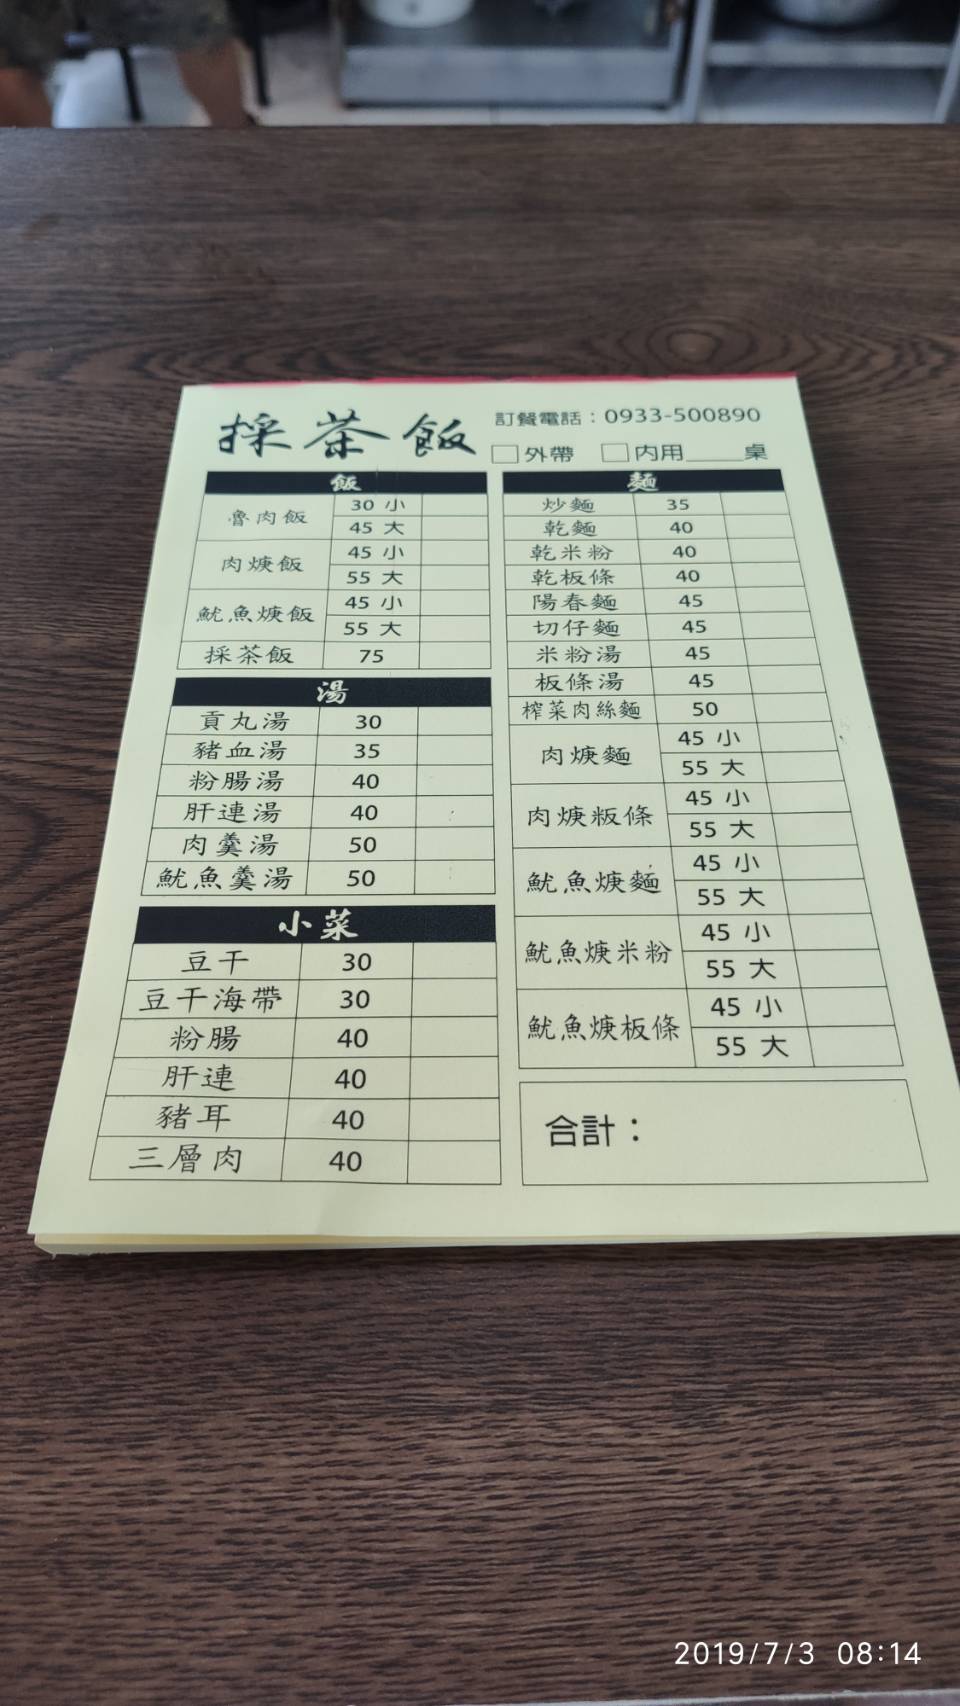 採茶飯
訂餐電話：0933-500890
□外帶 □內用____桌
飯
魯肉飯 30 小
45 大
肉焿飯 45 小
55 大
魷魚焿飯 45 小
55 大
採茶飯 75
湯
貢丸湯 30
豬血湯 35
粉腸湯 40
肝連湯 40
肉羹湯 50
魷魚羹湯 50
小菜
豆干 30
豆干海帶 30
粉腸 40
肝連 40
豬耳 40
三層肉 40
麵
炒麵 35
乾麵 40
乾米粉 40
乾板條 40
陽春麵 45
切仔麵 45
米粉湯 45
板條湯 45
榨菜肉絲麵 50
肉焿麵 45 小
55 大
肉焿粄條 45 小
55 大
魷魚焿麵 45 小
55 大
魷魚焿米粉 45 小
55 大
魷魚焿板條 45 小
55 大
合計：
2019/7/3 08:14